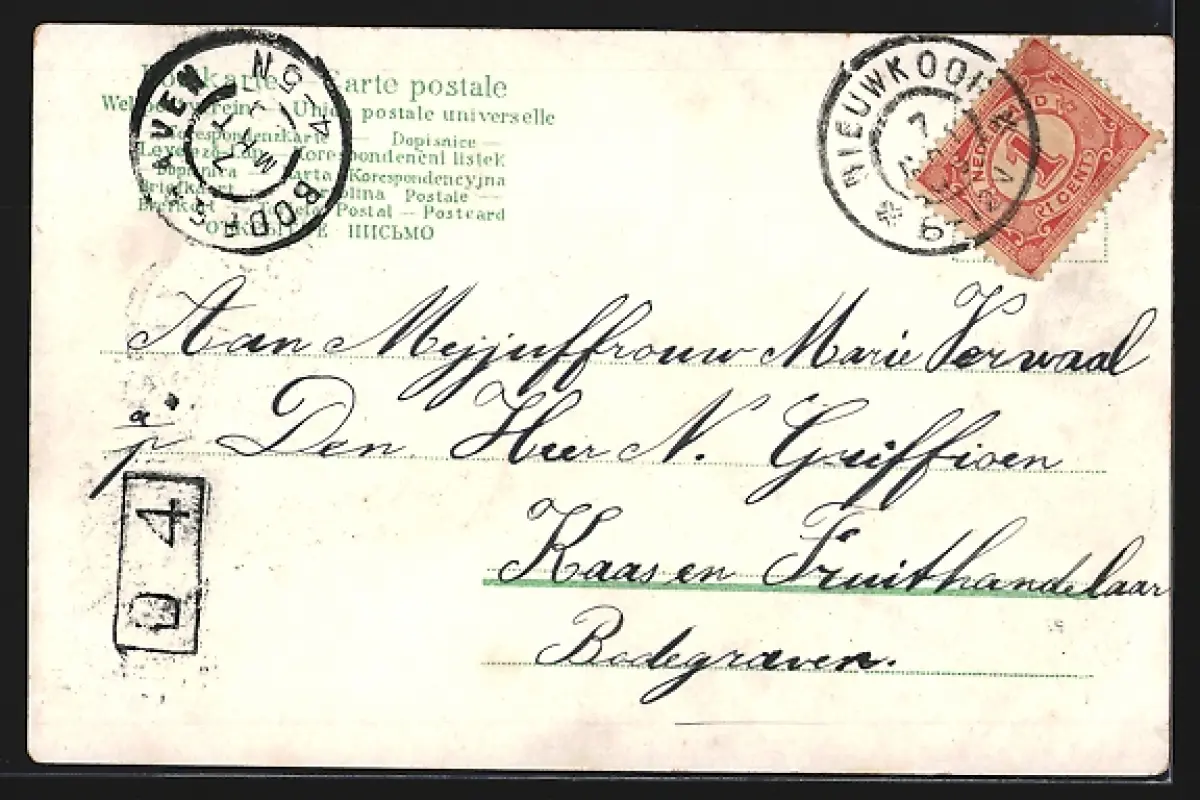 Postkarte – Carte postale
Weltpostverein – Union postale universelle
Korespondenzkarte – Dopisnice –
Levelező-Lap – Korespondenční listek
Dopisnica – Karta Korespondencyjna
Briefkaart – Cartolina Postale –
Brefkort – Tarjeta Postal – Postcard
ОТКРЫТОЕ ПИСЬМО
BODEGRAVEN
4-5N
NIEUWKOOP
NEDERLAND
1
CENT
Aan Mejjuffrouw Marie Verwaal
p/a Den Heer N. Griffioen
Kaas en Fruithandelaar
Bodegraven.
D 4